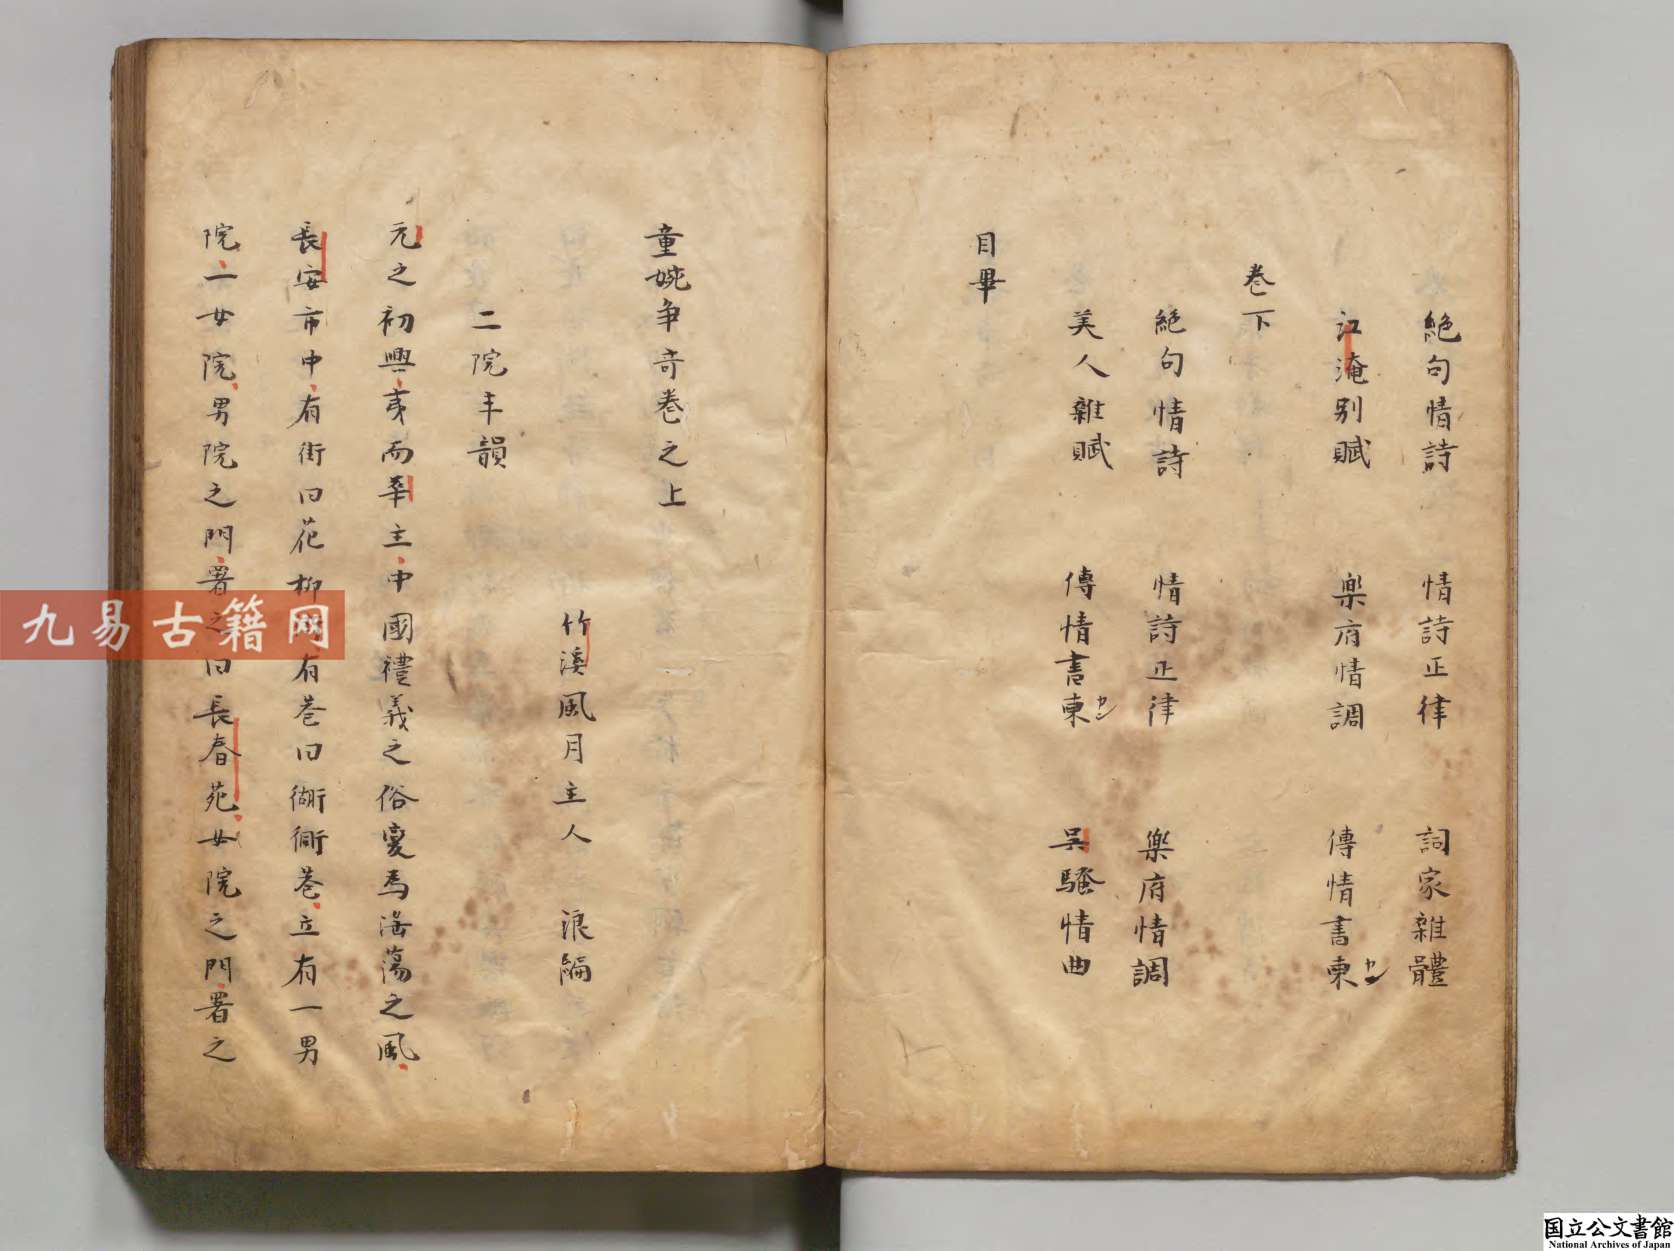 絶句情詩　情詩正律　詞家雜體
江淹別賦　樂府情調　傳情書柬カン
卷下
絶句情詩　情詩正律　樂府情調
美人雜賦　傳情書柬カン　吳騷情曲
目畢
童婉爭奇卷之上
竹溪風月主人　浪編
二院丰韻
元之初興夷而華主中國禮義之俗變爲淫蕩之風
長安市中有街曰花柳　有巷曰衚衕巷立有一男
院一女院男院之門署之曰長春苑女院之門署之
九易古籍网
国立公文書館
National Archives of Japan